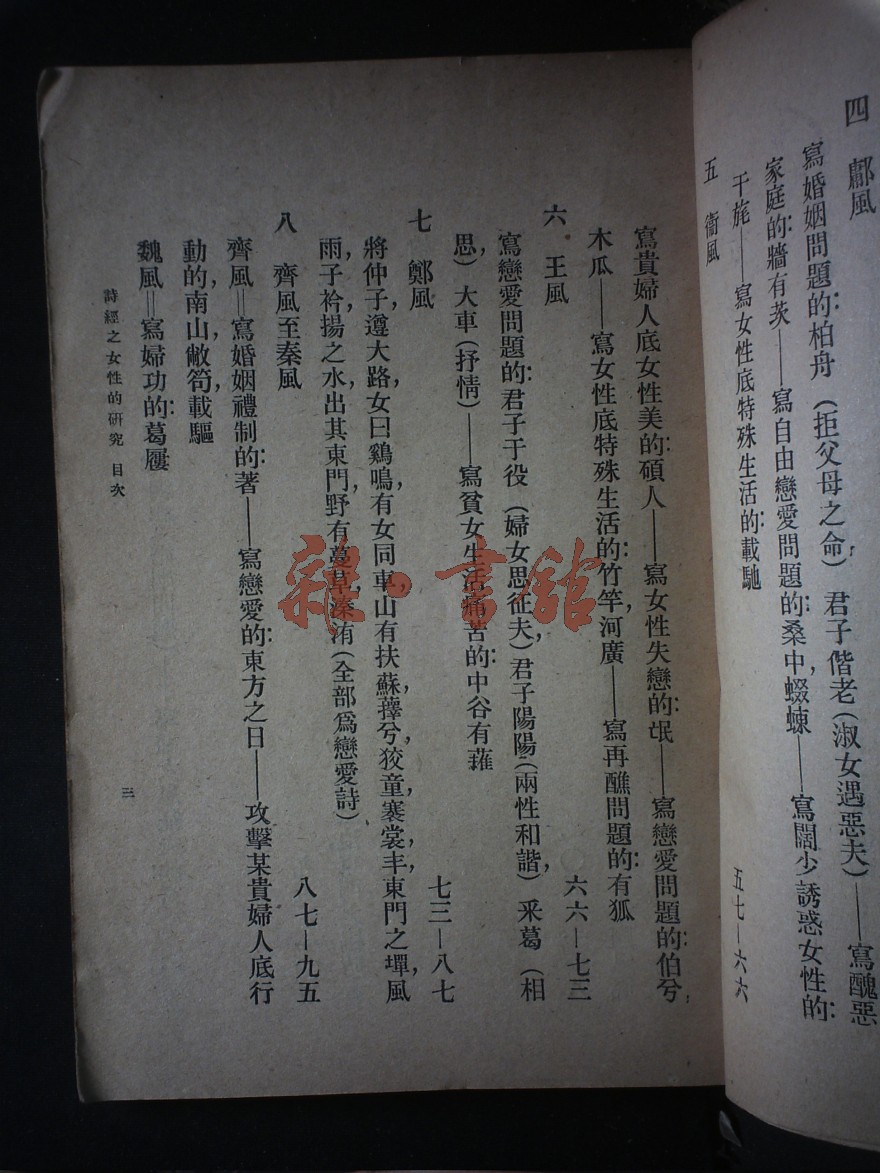 四　鄘風
寫婚姻問題的：柏舟（拒父母之命）君子偕老（淑女遇惡夫）——寫醜惡
家庭的：牆有茨——寫自由戀愛問題的：桑中，蝃蝀——寫闊少誘惑女性的：
干旄——寫女性底特殊生活的：載馳
五　衞風　五七—六六
寫貴婦人底女性美的：碩人——寫女性失戀的：氓——寫戀愛問題的：伯兮，
木瓜——寫女性底特殊生活的：竹竿，河廣——寫再醮問題的：有狐
六　王風　六六—七三
寫戀愛問題的：君子于役（婦女思征夫），君子陽陽（兩性和諧）釆葛（相
思），大車（抒情）——寫貧女生活痛苦的：中谷有蓷
七　鄭風　七三—八七
將仲子，遵大路，女曰鷄鳴，有女同車，山有扶蘇，蘀兮，狡童，褰裳，丰，東門之墠，風
雨，子衿，揚之水，出其東門，野有蔓草，溱洧（全部爲戀愛詩）
八　齊風至秦風　八七—九五
齊風＝寫婚姻禮制的：著——寫戀愛的：東方之日——攻擊某貴婦人底行
動的：南山，敝笱，載驅
魏風＝寫婦功的：葛屨
詩經之女性的研究　目次
三
雜·書館